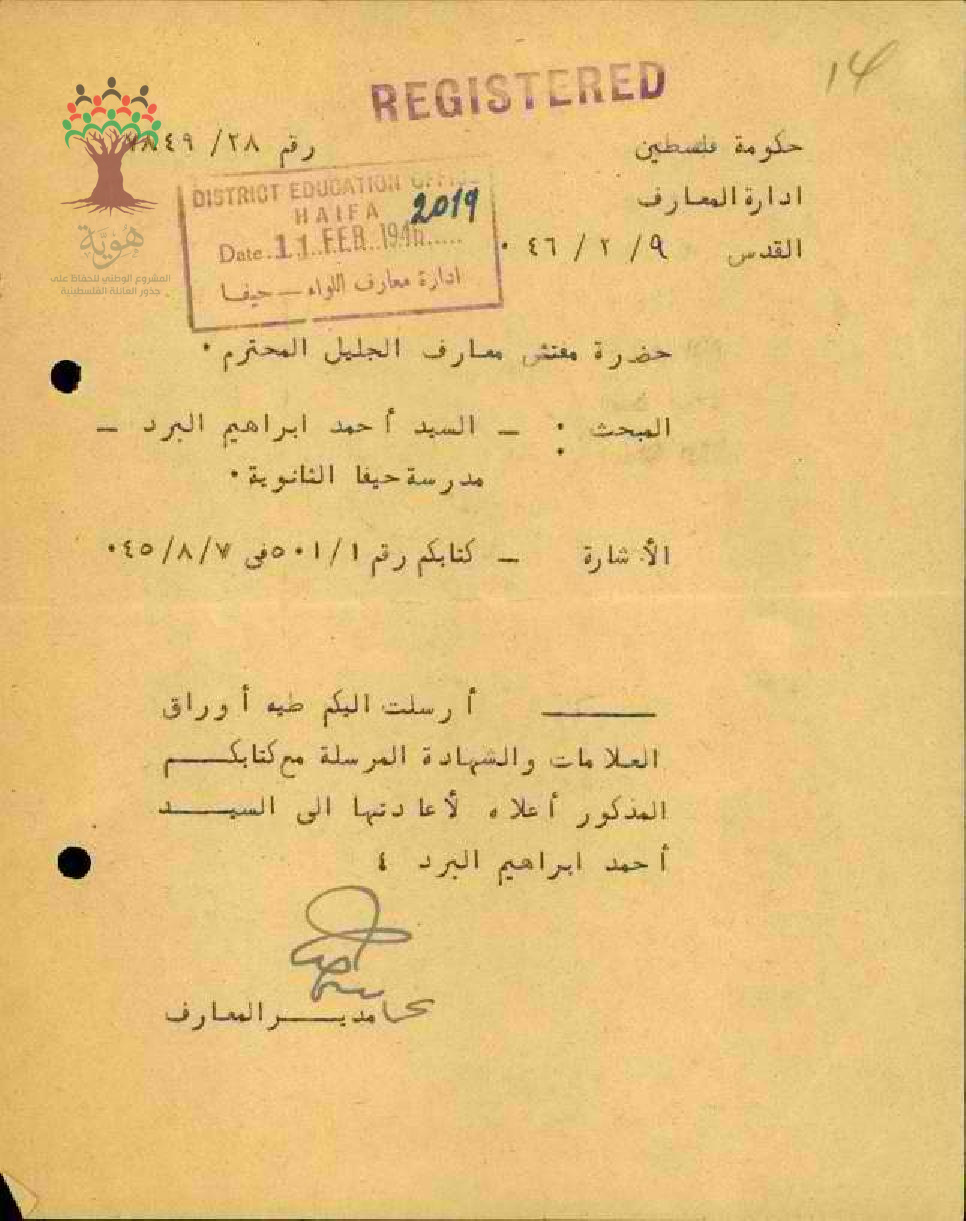 14
REGISTERED
حكومة فلسطين
رقم ٢٨/ ٧٨٤٩
ادارة المعارف
القدس ٩/ ٢/ ٤٦ ٠
DISTRICT EDUCATION OFFICE
HAIFA
2019
Date..11..FEB..1946.....
ادارة معارف اللواء — حيفا
هَوِيَّة
المشروع الوطني للحفاظ على
جذور العائلة الفلسطينية
حضرة مفتش معارف الجليل المحترم ٠
المبحث : – السيد أحمد ابراهيم البرد –
مدرسة حيفا الثانوية ٠
الأشارة – كتابكم رقم ٥٠١/١ في ٤٥/٨/٧ ٠
أرسلت اليكم طيه أوراق
العلامات والشهادة المرسلة مع كتابكــــم
المذكور أعلاه لأعادتها الى السيـــد
أحمد ابراهيم البرد ٤
مديـــر المعارف